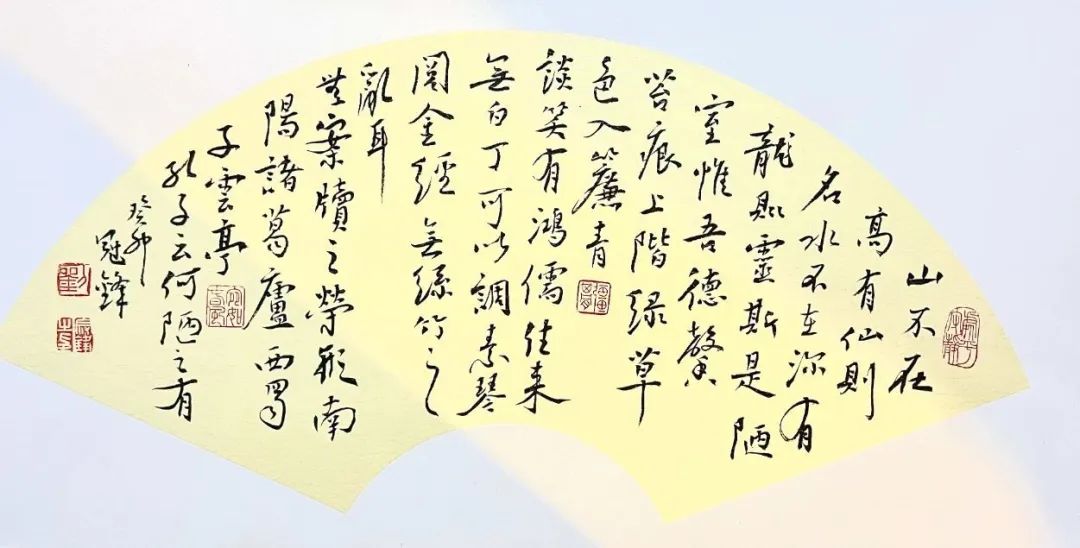 山不在
高有仙則
名水不在深有
龍則靈斯是陋
室惟吾德馨
苔痕上階緑草
色入簾青
談笑有鴻儒往来
無白丁可以調素琴
閱金經無絲竹之
亂耳
無案牘之勞形南
陽諸葛廬西蜀
子雲亭
孔子云何陋之有
癸卯
冠鋒